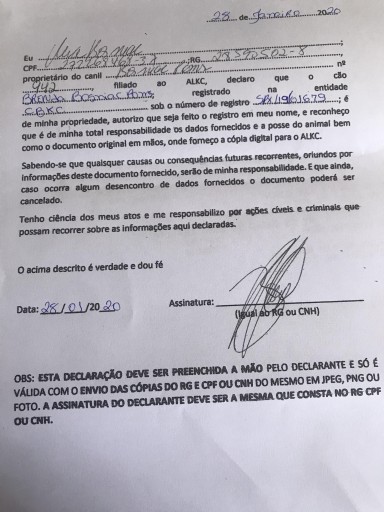 28 de Janeiro 2020
Eu
CPF ;RG 28 390502-8 ;
proprietário do canil nº
942, filiado ao ALKC, declaro que o cão
registrado na entidade
CBKC sob o número de registro ; é
de minha propriedade, autorizo que seja feito o registro em meu nome, e reconheço
que é de minha total responsabilidade os dados fornecidos e a posse do animal bem
como o documento original em mãos, onde forneço a cópia digital para o ALKC.
Sabendo-se que quaisquer causas ou consequências futuras recorrentes, oriundos por
informações deste documento fornecido, serão de minha responsabilidade. E que ainda,
caso ocorra algum desencontro de dados fornecidos o documento poderá ser
cancelado.
Tenho ciência dos meus atos e me responsabilizo por ações cíveis e criminais que
possam recorrer sobre as informações aqui declaradas.
O acima descrito é verdade e dou fé
Data: 28/01/2020 Assinatura:
(Igual ao RG ou CNH)
OBS: ESTA DECLARAÇÃO DEVE SER PREENCHIDA A MÃO PELO DECLARANTE E SÓ É
VÁLIDA COM O ENVIO DAS CÓPIAS DO RG E CPF OU CNH DO MESMO EM JPEG, PNG OU
FOTO. A ASSINATURA DO DECLARANTE DEVE SER A MESMA QUE CONSTA NO RG CPF
OU CNH.